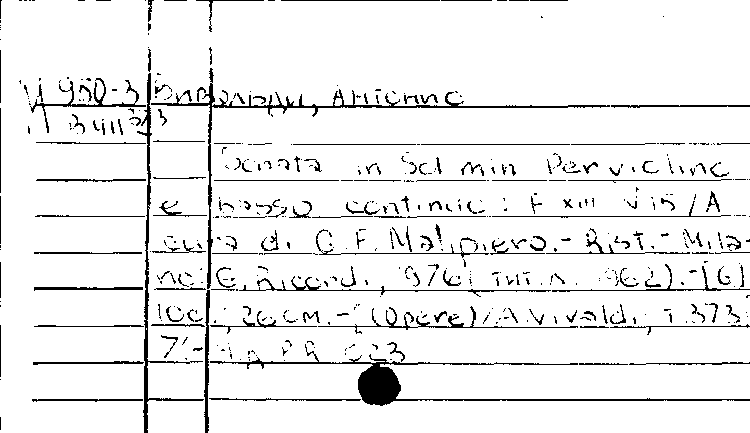 И 950-3 Вивальди, Антонио
3411 323
Sonata in Sol min per violino
e basso continuo : F XIII № 15 / A
cura di G. F. Malipiero.- Rist.- Mila-
no: G. Ricordi, 1976 (тит. л. 1962).- [6]
10c., 26 cm.- (Opere) / A. Vivaldi, т. 373.